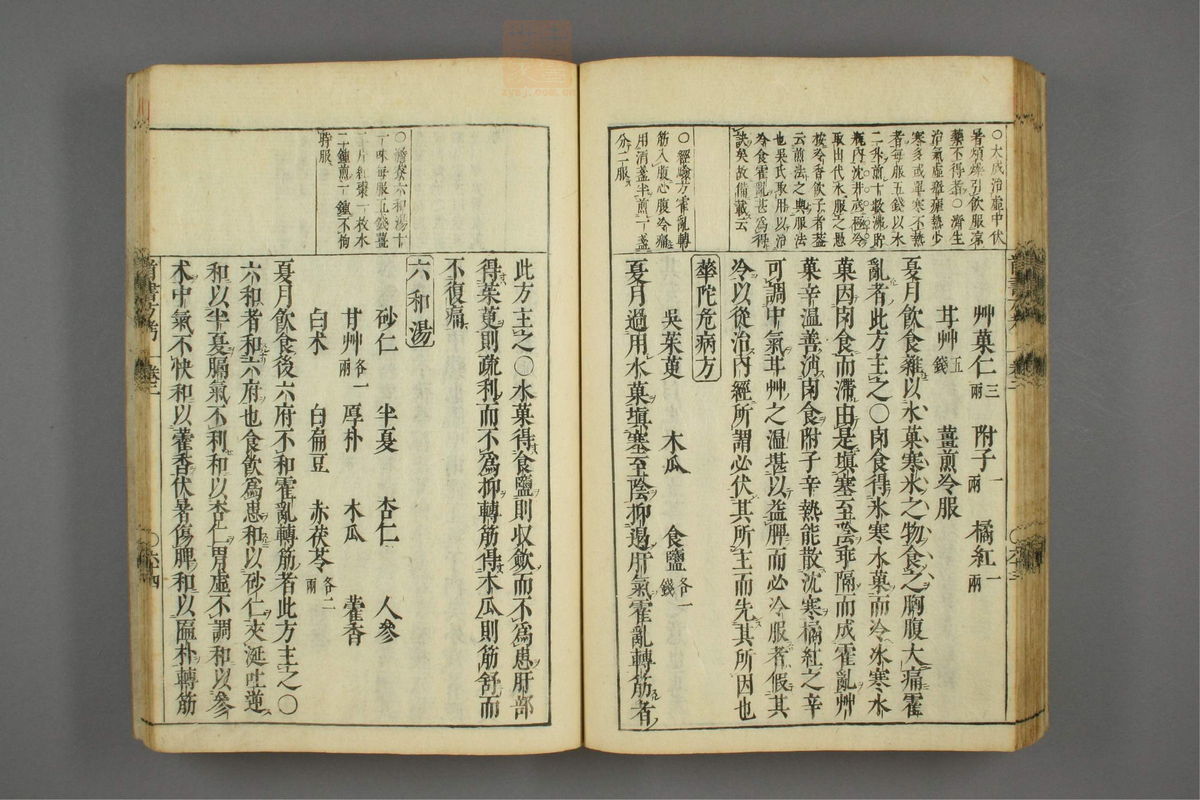 ○大成治虛中伏
暑煩燥引飲服涼
藥不得者○濟生
治氣虛瘴瘧熱少
寒多或單寒不熱
者每服五錢以水
二升煎十數沸貯
瓶內沈井底極冷
取出代水服之愚
按冷香飲子者蓋
云煎法之與服法
也吳氏取用以治
冷食霍亂甚爲得
訣矣故備載云
○經驗方霍亂轉
筋入腹心腹冷痛
用消盞半煎一盞
分二服
艸菓仁三兩 附子一兩 橘紅一兩
甘艸五錢 薑煎冷服
夏月飲食雜以水菓寒氷之物食之胸腹大痛霍
亂者此方主之○肉食得氷寒水菓而冷氷寒水
菓因肉食而滯由是塡塞至陰乖隔而成霍亂艸
菓辛溫善消肉食附子辛熱能散沈寒橘紅之辛
可調中氣甘艸之溫堪以益脾而必冷服者假其
冷以從治內經所謂必伏其所主而先其所因也
華陀危病方
吳茱萸 木瓜 食鹽各一錢
夏月過用水菓塡塞至陰抑遏肝氣霍亂轉筋者
醫書方考 卷二 ○六十三
○澹寮六和湯十
一味每服五錢薑
三片紅棗一枚水
二鐘煎一鐘不拘
時服
此方主之○水菓得食鹽則收斂而不爲患肝部
得茱萸則疏利而不爲抑轉筋得木瓜則筋舒而
不復痛
六和湯
砂仁 半夏 杏仁 人參
甘艸各一兩 厚朴 木瓜 藿香
白朮 白扁豆 赤茯苓各二兩
夏月飲食後六府不和霍亂轉筋者此方主之○
六和者和六府也食飲爲患和以砂仁夾涎吐逆
和以半夏膈氣不利和以杏仁胃虛不調和以參
朮中氣不快和以藿香伏暑傷脾和以匾朴轉筋
卷二 ○六十四